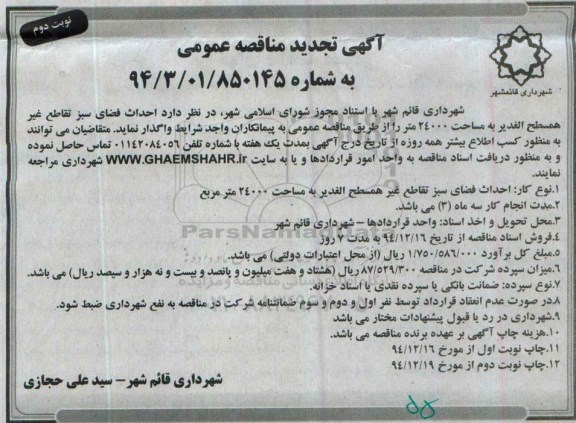 نوبت دوم
آگهی تجدید مناقصه عمومی
به شماره ۹۴/۳/۰۱/۸۵۰۱۴۵
شهرداری قائمشهر
شهرداری قائم شهر با استناد مجوز شورای اسلامی شهر، در نظر دارد احداث فضای سبز تقاطع غیر
همسطح الغدیر به مساحت ۲۴۰۰۰ متر را از طریق مناقصه عمومی به پیمانکاران واجد شرایط واگذار نماید. متقاضیان می توانند
به منظور کسب اطلاع بیشتر همه روزه از تاریخ درج آگهی بمدت یک هفته با شماره تلفن ۰۱۱۴۲۰۸۴۰۵۶ تماس حاصل نموده
و به منظور دریافت اسناد مناقصه به واحد امور قراردادها و یا به سایت WWW.GHAEMSHAHR.ir شهرداری مراجعه
نمایند.
۱.نوع کار: احداث فضای سبز تقاطع غیر همسطح الغدیر به مساحت ۲۴۰۰۰ متر مربع
۲.مدت انجام کار سه ماه (۳) می باشد.
۳.محل تحویل و اخذ اسناد: واحد قراردادها – شهرداری قائم شهر
۴.فروش اسناد مناقصه از تاریخ ۹۴/۱۲/۱۶ به مدت ۷ روز
۵.مبلغ کل برآورد ۱/۷۵۰/۵۸۶/۰۰۰ ریال (از محل اعتبارات دولتی) می باشد.
۶.میزان سپرده شرکت در مناقصه ۸۷/۵۲۹/۳۰۰ ریال (هشتاد و هفت میلیون و پانصد و بیست و نه هزار و سیصد ریال) می باشد.
۷.نوع سپرده: ضمانت بانکی یا سپرده نقدی یا اسناد خزانه.
۸.در صورت عدم انعقاد قرارداد توسط نفر اول و دوم و سوم ضمانتنامه شرکت در مناقصه به نفع شهرداری ضبط شود.
۹.شهرداری در رد یا قبول پیشنهادات مختار می باشد
۱۰.هزینه چاپ آگهی بر عهده برنده مناقصه می باشد.
۱۱.چاپ نوبت اول از مورخ ۹۴/۱۲/۱۶
۱۲.چاپ نوبت دوم از مورخ ۹۴/۱۲/۱۹
شهرداری قائم شهر – سید علی حجازی
ParsNamadData